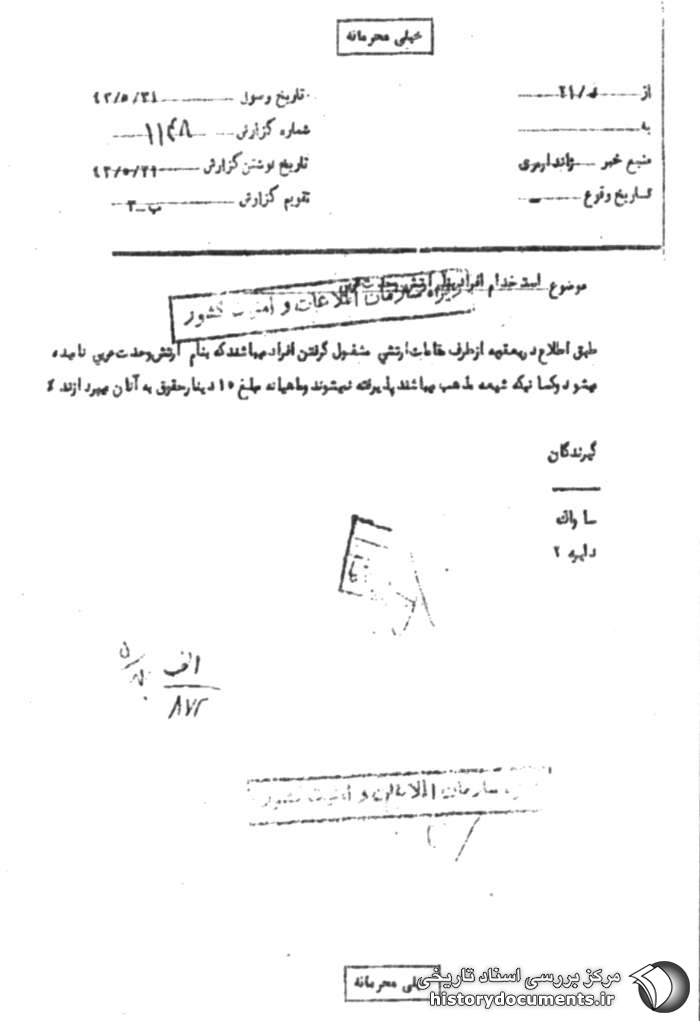 خیلی محرمانه
از ف/۲۱
به
منبع خبر ژاندارمری
تاریخ وقوع
تاریخ وصول ۴۳/۵/۳۱
شماره گزارش ۱۱۴۸
تاریخ نوشتن گزارش ۴۳/۵/۲۹
تقویم گزارش ب-۳
موضوع استخدام افراد بنام ارتش وحدت عربی
سازمان اطلاعات و امنیت کشور
طبق اطلاع در بعقوبه از طرف مقامات ارتشی مشغول گرفتن افراد میباشند که بنام ارتش وحدت عربی نامیده
میشود و کسانیکه شیعه مذهب میباشند پذیرفته نمیشوند و ماهیانه مبلغ ۱۵ دینار حقوق به آنان میپردازند ٤
گیرندگان
ساواک
دایره ۲
الف
۸۷۲
سازمان اطلاعات و امنیت کشور
خیلی محرمانه
مرکز بررسی اسناد تاریخی
historydocuments.ir